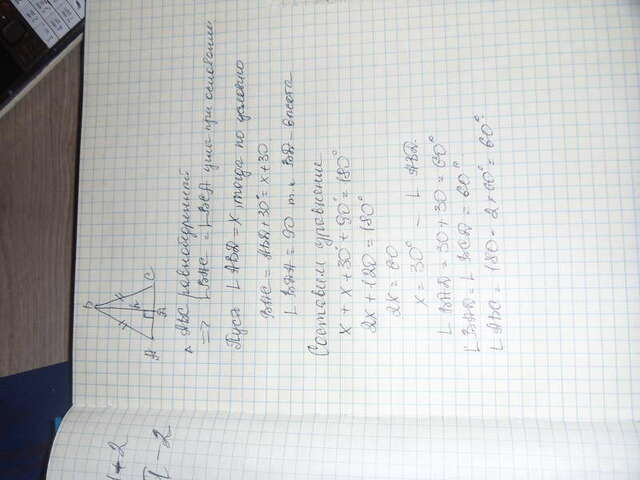 B
h
A
C
Д
Δ ABC равнобедренный
=> ∠BAC = ∠BCA углы при основании
Пусть ∠ABD = x, тогда по условию
BAC = ABD + 30° = x + 30
∠BDA = 90 т.к BD - высота
Составим уравнение
x + x + 30° + 90° = 180°
2x + 120 = 180°
2x = 60
x = 30° - ∠ ABD.
∠ BAD = 30 + 30 = 60°
∠ BAD = ∠ BCD = 60°
∠ ABC = 180 - 2×60° = 60°
- 2